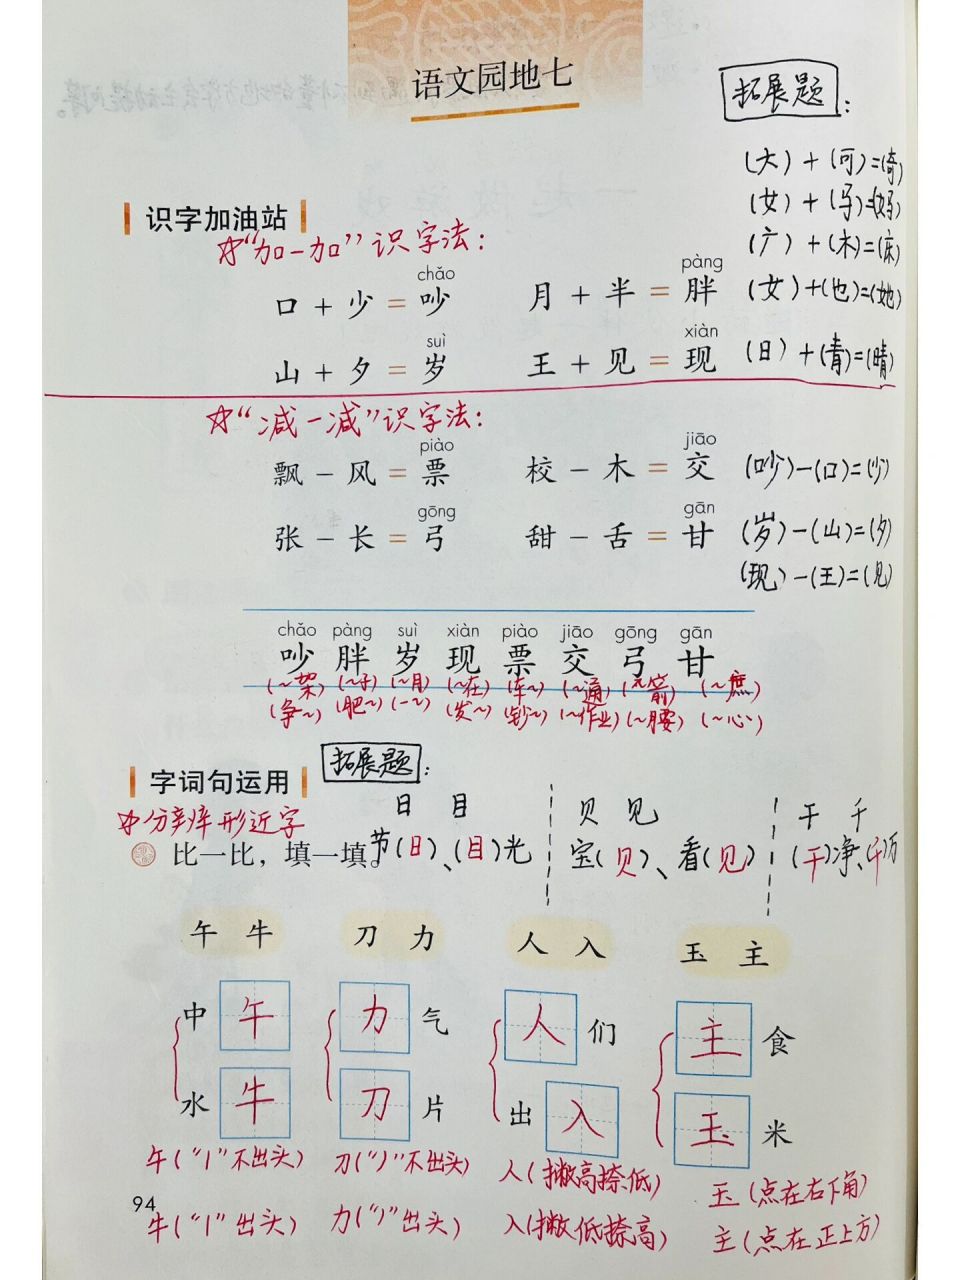 语文园地七
拓展题：
(大)+(可)=(奇)
(女)+(马)=(妈)
(广)+(木)=(床)
(女)+(也)=(她)
(日)+(青)=(晴)
识字加油站
☆“加一加”识字法：
chǎo pàng
口+少=吵 月+半=胖
suì xiàn
山+夕=岁 王+见=现
☆“减一减”识字法：
piào jiāo
飘-风=票 校-木=交
gōng gān
张-长=弓 甜-舌=甘
(吵)-(口)=(少)
(岁)-(山)=(夕)
(现)-(王)=(见)
chǎo pàng suì xiàn piào jiāo gōng gān
吵 胖 岁 现 票 交 弓 甘
(~架) (~子) (~月) (~在) (车~) (~通) (~箭) (~蔗)
(争~) (肥~) (一~) (发~) (钞~) (~作业) (~腰) (~心)
字词句运用
拓展题：
☆分辨形近字
日 目 贝 见 干 千
节(日)、(目)光 宝(贝)、看(见) (干)净、(千)万
比一比，填一填。
午 牛 刀 力 人 入 玉 主
中午 力气 人们 主食
水牛 刀片 出入 玉米
午(“丨”不出头) 刀(“丿”不出头) 人(撇高捺低) 玉(点在右下角)
牛(“丨”出头) 力(“丿”出头) 入(撇低捺高) 主(点在正上方)
94